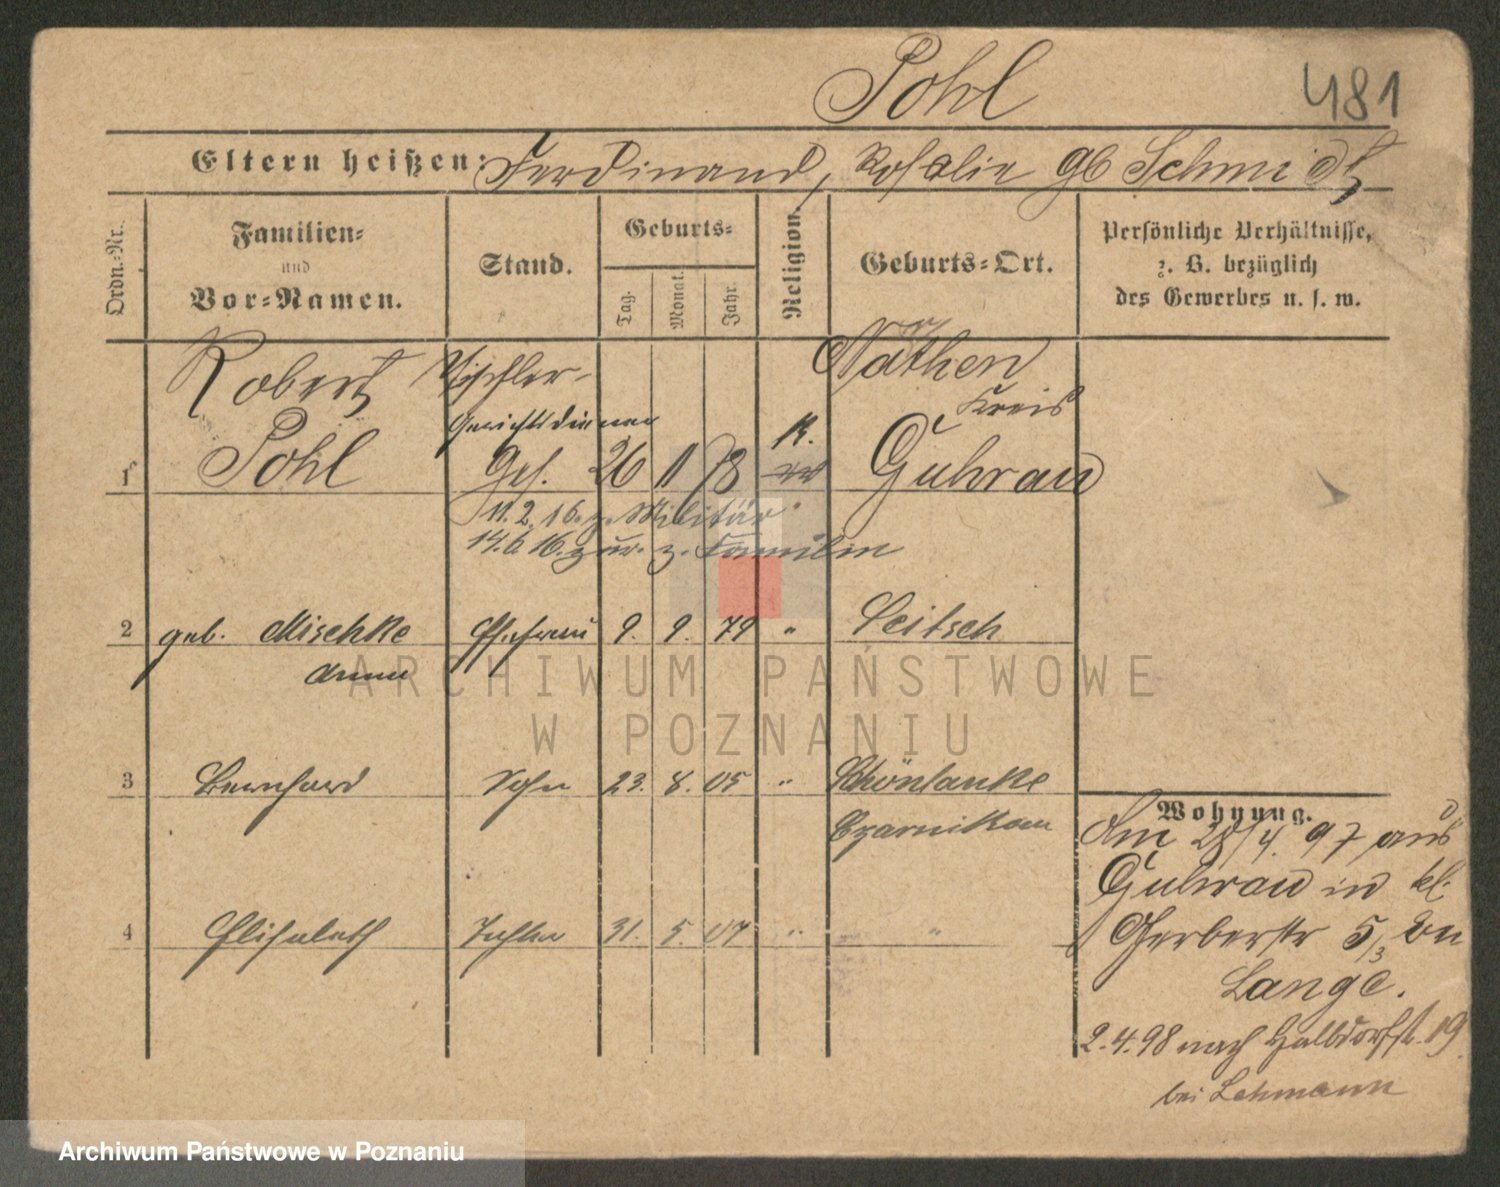 Pohl
481
Eltern heißen: Ferdinand, Rosalie gb Schmidt
Ordn.-Nr.
Familien-
und
Vor-Namen.
Stand.
Geburts-
Tag.
Monat.
Jahr.
Religion.
Geburts-Ort.
Persönliche Verhältnisse,
z. B. bezüglich
des Gewerbes u. s. w.
1
Robert
Pohl
Tischler-
Gerichtsdiener
Ges.
26
11
78
K.
Näthen
Kreis
Guhrau
11.2.16. z. Militär
14.6.16. zur. z. Familie
2
geb. Mischke
Anna
Ehefrau
9.
9.
79
"
Leitsch
3
Bernhard
Sohn
23.
8.
05
"
Schönlanke
Czarnikau
4
Elisabeth
Tochter
31.
5.
07
"
"
Wohnung.
Am 28/4. 97 aus
Guhrau in kl.
Gerberstr 5/3 bei
Lange.
2.4.98 nach Halbdorfst. 19
bei Lehmann
ARCHIWUM PAŃSTWOWE
W POZNANIU
Archiwum Państwowe w Poznaniu